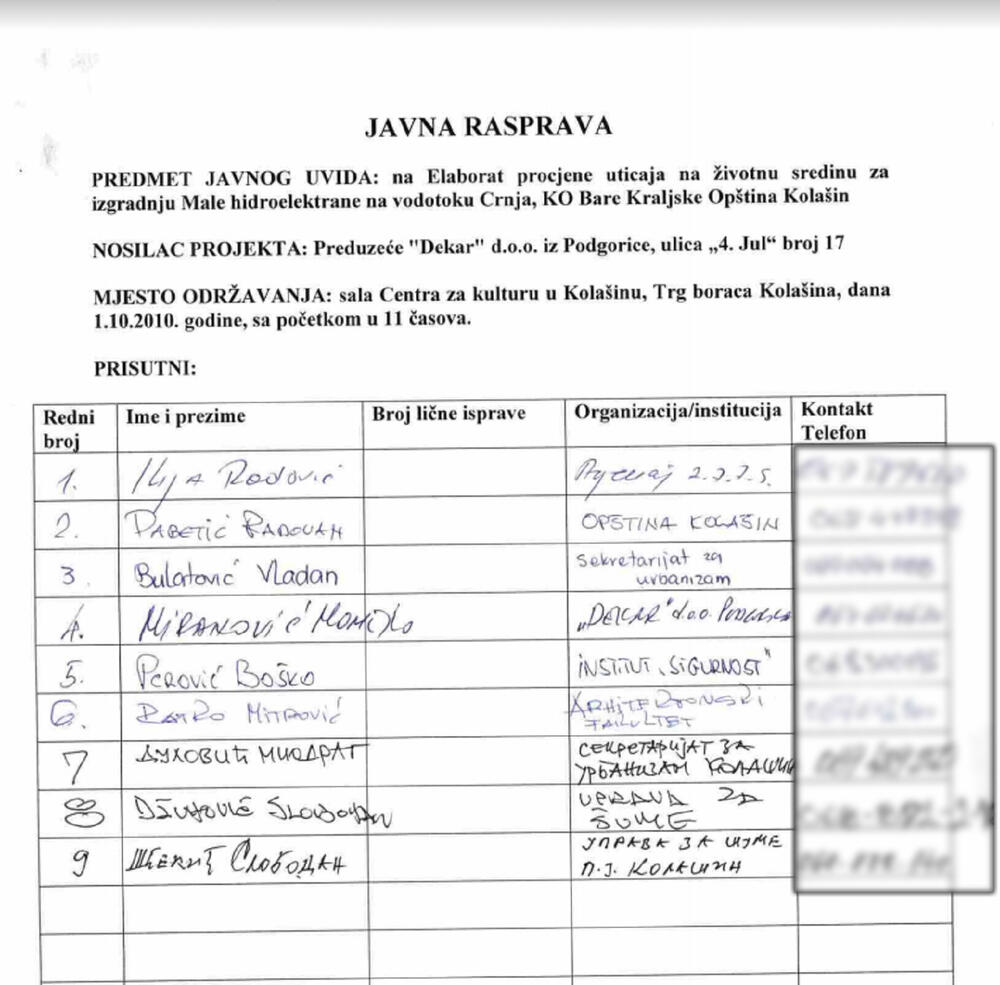 JAVNA RASPRAVA
PREDMET JAVNOG UVIDA: na Elaborat procjene uticaja na životnu sredinu za
izgradnju Male hidroelektrane na vodotoku Crnja, KO Bare Kraljske Opština Kolašin
NOSILAC PROJEKTA: Preduzeće "Dekar" d.o.o. iz Podgorice, ulica „4. Jul“ broj 17
MJESTO ODRŽAVANJA: sala Centra za kulturu u Kolašinu, Trg boraca Kolašina, dana
1.10.2010. godine, sa početkom u 11 časova.
PRISUTNI:
Redni broj Ime i prezime Broj lične isprave Organizacija/institucija Kontakt Telefon
1. Ilija Radović
2. RADOVAN OPŠTINA KOLAŠIN
3. Bulatović Vladan Sekretarijat za
urbanizam
4. MIRANOVIĆ MOMČILO „DEKAR" d.o.o. PODGORICA
5. PEROVIĆ BOŠKO INSTITUT „SIGURNOST"
6. RATKO MITROVIĆ ARHITEKTONSKI
FAKULTET
7 МИОДРАГ СЕКРЕТАРИЈАТ ЗА
УРБАНИЗАМ КОЛАШИН
8 SLOBODAN UPRAVA ZA
ŠUME
9 ШЋЕКИЋ СЛОБОДАН УПРАВА ЗА ШУМЕ
П.Ј. КОЛАШИН